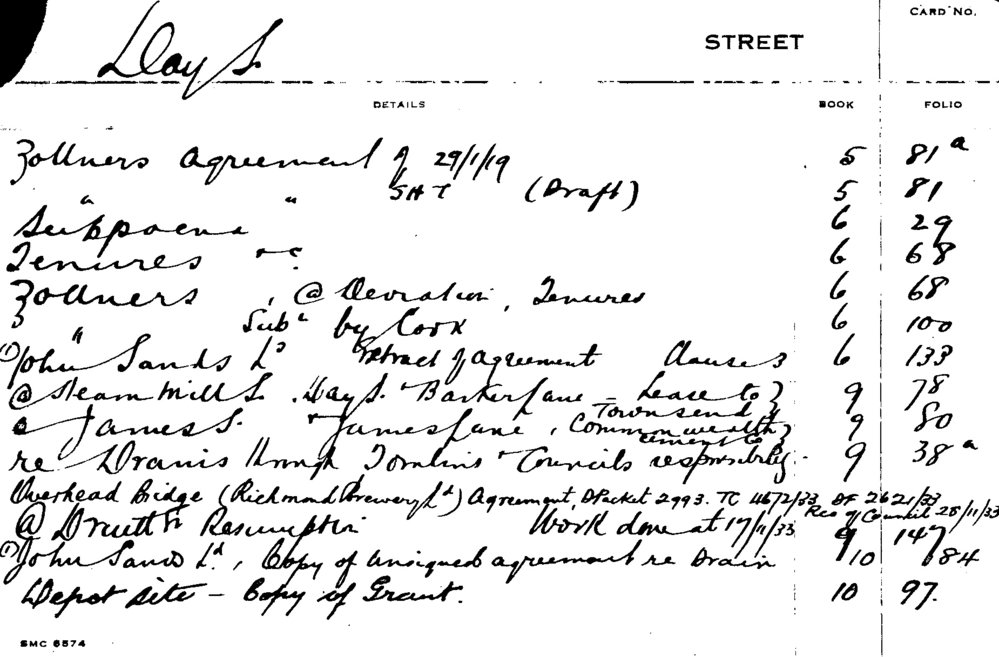 CARD NO.
Day St. STREET
DETAILS BOOK FOLIO
Zollners Agreement of 29/1/19 5 81a
" " (Draft) 5 81
Subpoena 6 29
Tenures 6 68
Zollners , @ Deviation , Tenures 6 68
" by Cox 6 100
(1) John Sands Ld Extract of agreement Clause 3 6 133
@ Steam Mill St. , Day St. & Barker Lane – Lease to } 9 78
James St. & James Lane , Townsend & Commonwealth Cement Co } 9 80
re Drains through Tomlins & Councils responsibility 9 38a
Overhead Bridge (Richmond Brewery Ld) Agreement, DPacket 2993. TC 4672/33 DF 2621/33
Res of Council 28/11/33
@ Druitt St Resumption Work done at 17/11/33 9 147
(1) John Sand Ld. , Copy of unsigned agreement re Drain 10 84
Depot site – Copy of Grant. 10 97.
SMC 6574